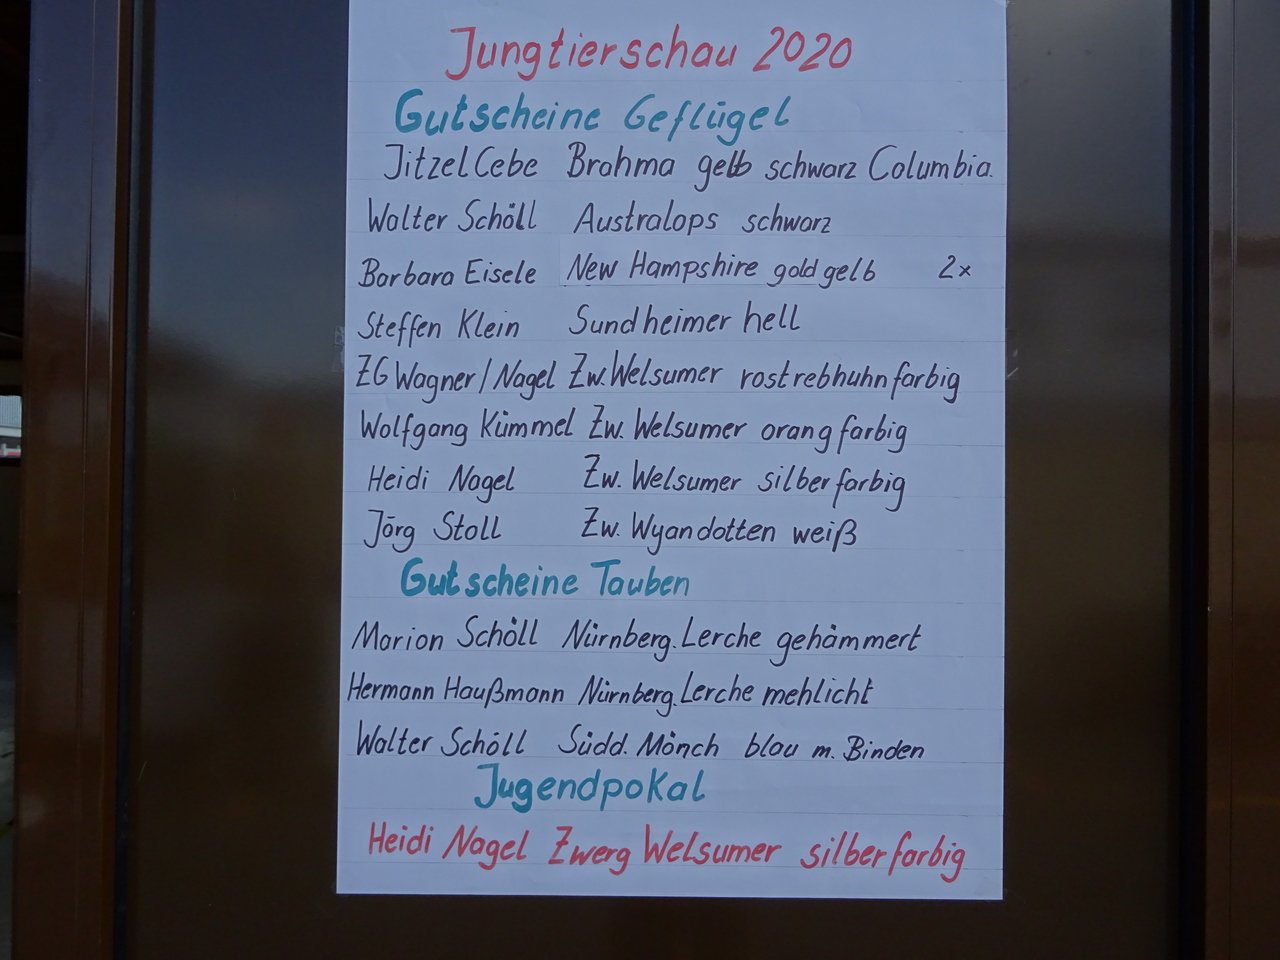 Jungtierschau 2020
Gutscheine Geflügel
Jitzel Cebe Brahma gelb schwarz Columbia.
Walter Schöll Australops schwarz
Barbara Eisele New Hampshire goldgelb 2x
Steffen Klein Sundheimer hell
ZG Wagner/Nagel Zw. Welsumer rostrebhuhnfarbig
Wolfgang Kümmel Zw. Welsumer orangfarbig
Heidi Nagel Zw. Welsumer silberfarbig
Jörg Stoll Zw. Wyandotten weiß
Gutscheine Tauben
Marion Schöll Nürnberg. Lerche gehämmert
Hermann Haußmann Nürnberg. Lerche mehlicht
Walter Schöll Südd. Mönch blau m. Binden
Jugendpokal
Heidi Nagel Zwerg Welsumer silberfarbig